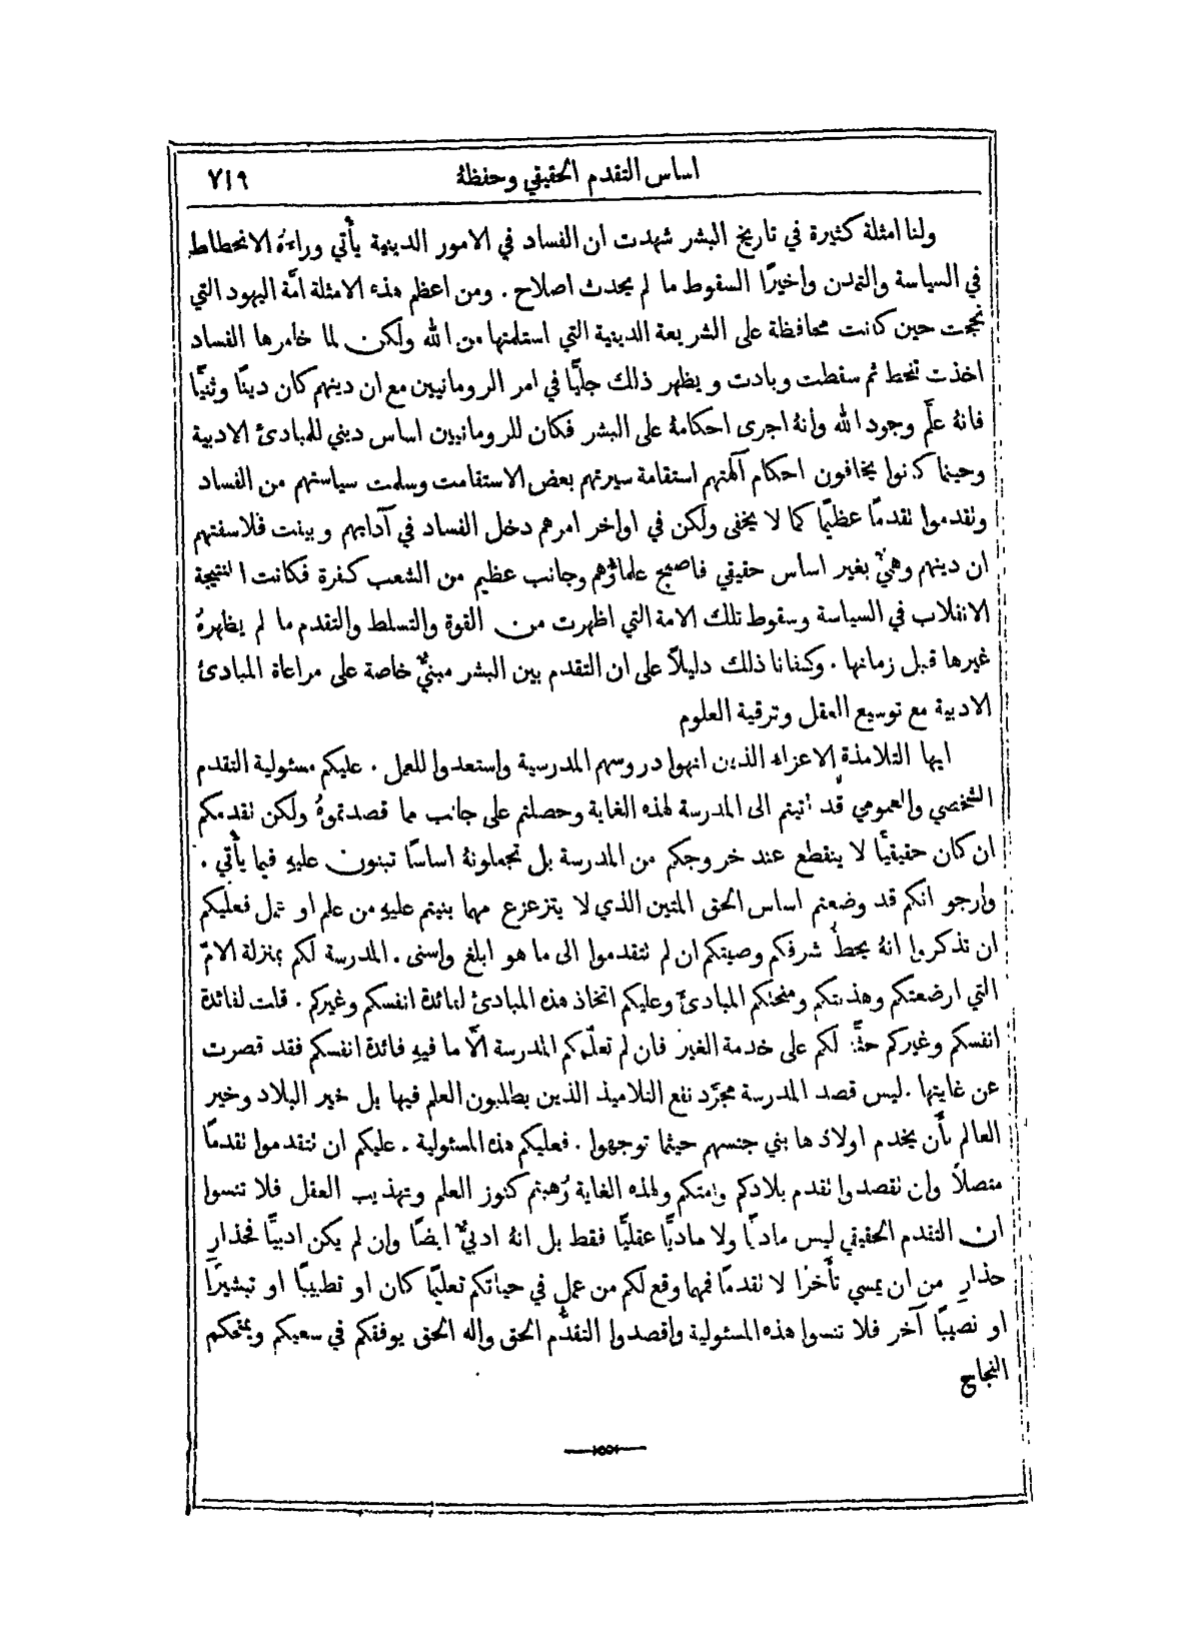 اساس التقدم الحقيقي وحفظهُ ٧١٩
ولنا امثلة كثيرة في تاريخ البشر شهدت ان الفساد في الامور الدينية يأتي وراءهُ الانحطاط
في السياسة والتمدن واخيرًا السقوط ما لم يحدث اصلاح . ومن اعظم هذه الامثلة امَّة اليهود التي
نجحت حين كانت محافظة على الشريعة الدينية التي استلمتها من الله ولكن لما خامرها الفساد
اخذت تنحط ثم سقطت وبادت ويظهر ذلك جليًّا في امر الرومانيين مع ان دينهم كان دينًا وثنيًّا
فانهُ علَّم وجود الله وانهُ اجرى احكامهُ على البشر فكان للرومانيين اساس ديني للمبادئ الادبية
وحينما كانوا يخافون احكام آلهتهم استقامة سيرتهم بعض الاستقامت وسلمت سياستهم من الفساد
وتقدموا تقدمًا عظيمًا كما لا يخفى ولكن في اواخر امرهم دخل الفساد في آدابهم وبينت فلاسفتهم
ان دينهم وهيٌّ بغير اساس حقيقي فاصبح علماؤهم وجانب عظيم من الشعب كفرة فكانت النتيجة
الانقلاب في السياسة وسقوط تلك الامة التي اظهرت من القوة والتسلط والتقدم ما لم يظهرهُ
غيرها قبل زمانها . وكفانا ذلك دليلاً على ان التقدم بين البشر مبنيٌّ خاصة على مراعاة المبادئ
الادبية مع توسيع العقل وترقية العلوم
ايها التلامذة الاعزاء الذين انهوا دروسهم المدرسية واستعدوا للعمل . عليكم مسئولية التقدم
الشخصي والعمومي قد اتيتم الى المدرسة لهذه الغاية وحصلتم على جانب مما قصدتموهُ ولكن تقدمكم
ان كان حقيقيًّا لا ينقطع عند خروجكم من المدرسة بل تجعلونهُ اساسًا تبنون عليهِ فيما يأتي .
وارجو انكم قد وضعتم اساس الحق المتين الذي لا يتزعزع مهما بنيتم عليهِ من علم او عمل فعليكم
ان تذكروا انهُ يحطُّ شرفكم وصيتكم ان لم تتقدموا الى ما هو ابلغ واسنى . المدرسة لكم بمنزلة الامّ
التي ارضعتكم وهذبتكم ومنحتكم المبادئ وعليكم اتخاذ هذه المبادئ لفائدة انفسكم وغيركم . قلت لفائدة
انفسكم وغيركم حثًّا لكم على خدمة الغير فان لم تعلّمكم المدرسة الَّا ما فيهِ فائدة انفسكم فقد قصرت
عن غايتها . ليس قصد المدرسة مجرَّد نفع التلاميذ الذين يطلبون العلم فيها بل خير البلاد وخير
العالم بأن يخدم اولادها بني جنسهم حيثما توجهوا . فعليكم هذه المسئولية . عليكم ان تتقدموا تقدمًا
متصلاً وان تقصدوا تقدم بلادكم وامتكم ولهذه الغاية وُهبتم كنوز العلم وتهذيب العقل فلا تنسوا
ان التقدم الحقيقي ليس ماديًّا ولا ماديًّا عقليًّا فقط بل انهُ ادبيٌّ ايضًا وان لم يكن ادبيًّا فحذارِ
حذارِ من ان يمسي تأخرًا لا تقدمًا فمهما وقع لكم من عمل في حياتكم تعليمًا كان او تطبيبًا او تبشيرًا
او نصيبًا آخر فلا تنسوا هذه المسئولية واقصدوا التقدُّم الحق واله الحق يوفقكم في سعيكم ويمنحكم
النجاح